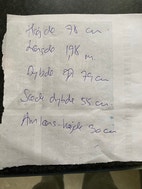 Højde 78 cm
Længde 198 m
Dybde 79 cm
Sæde dybde 55 cm
Armlæns højde 50 cm